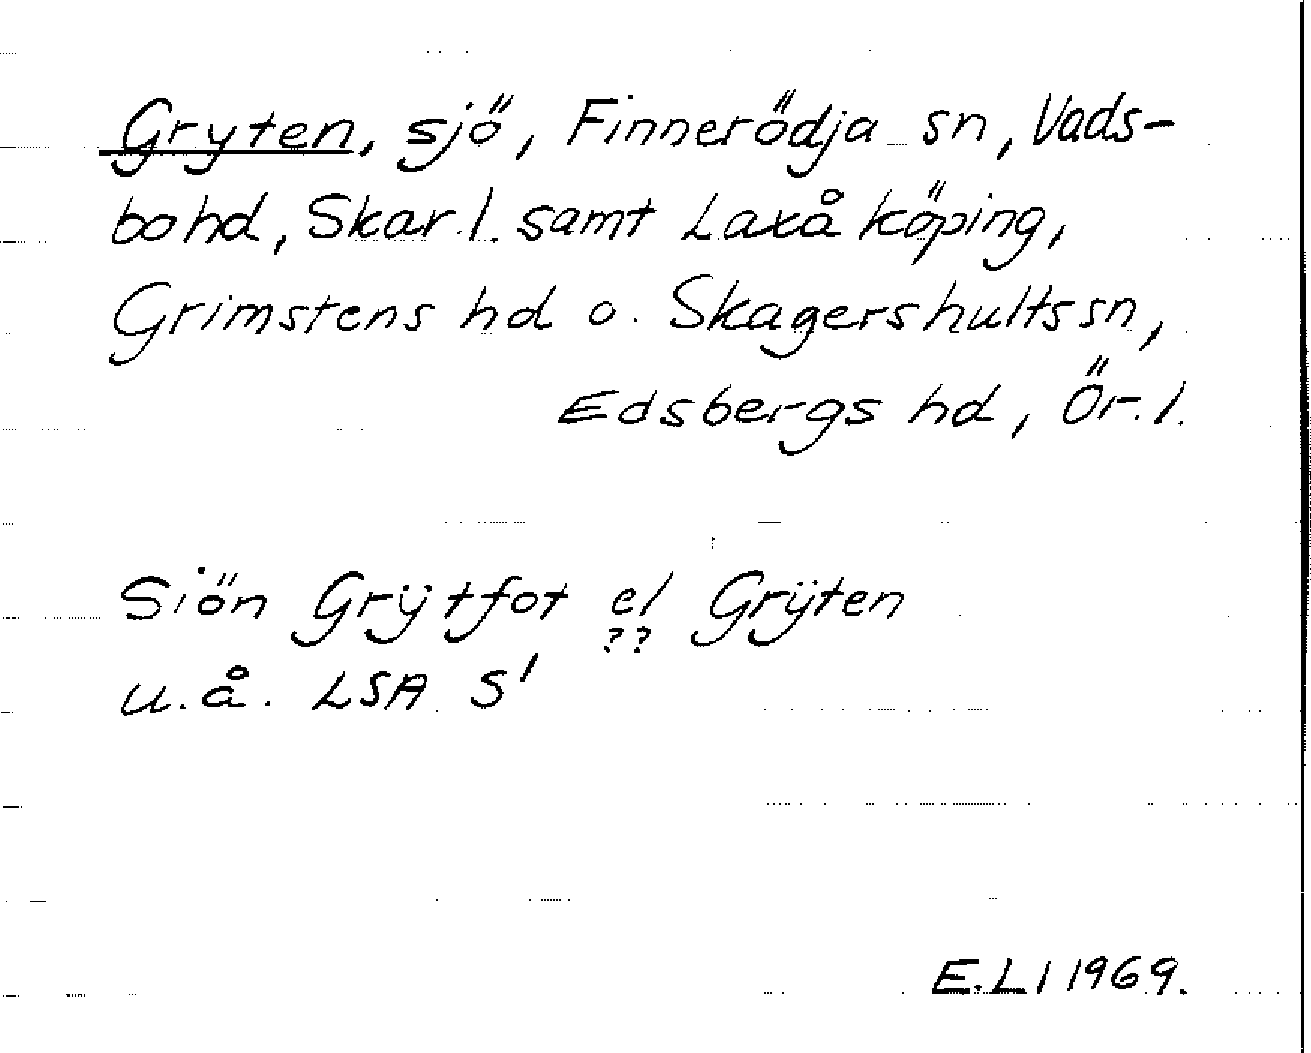 Gryten, sjö, Finnerödja sn, Vads-
bohd, Skar. l. samt Laxå köping,
Grimstens hd o. Skagershults sn,
Edsbergs hd, Ör. l.
Siön Grÿtfot el Grÿten
??
u.å. LSA S'
E.Ll 1969.